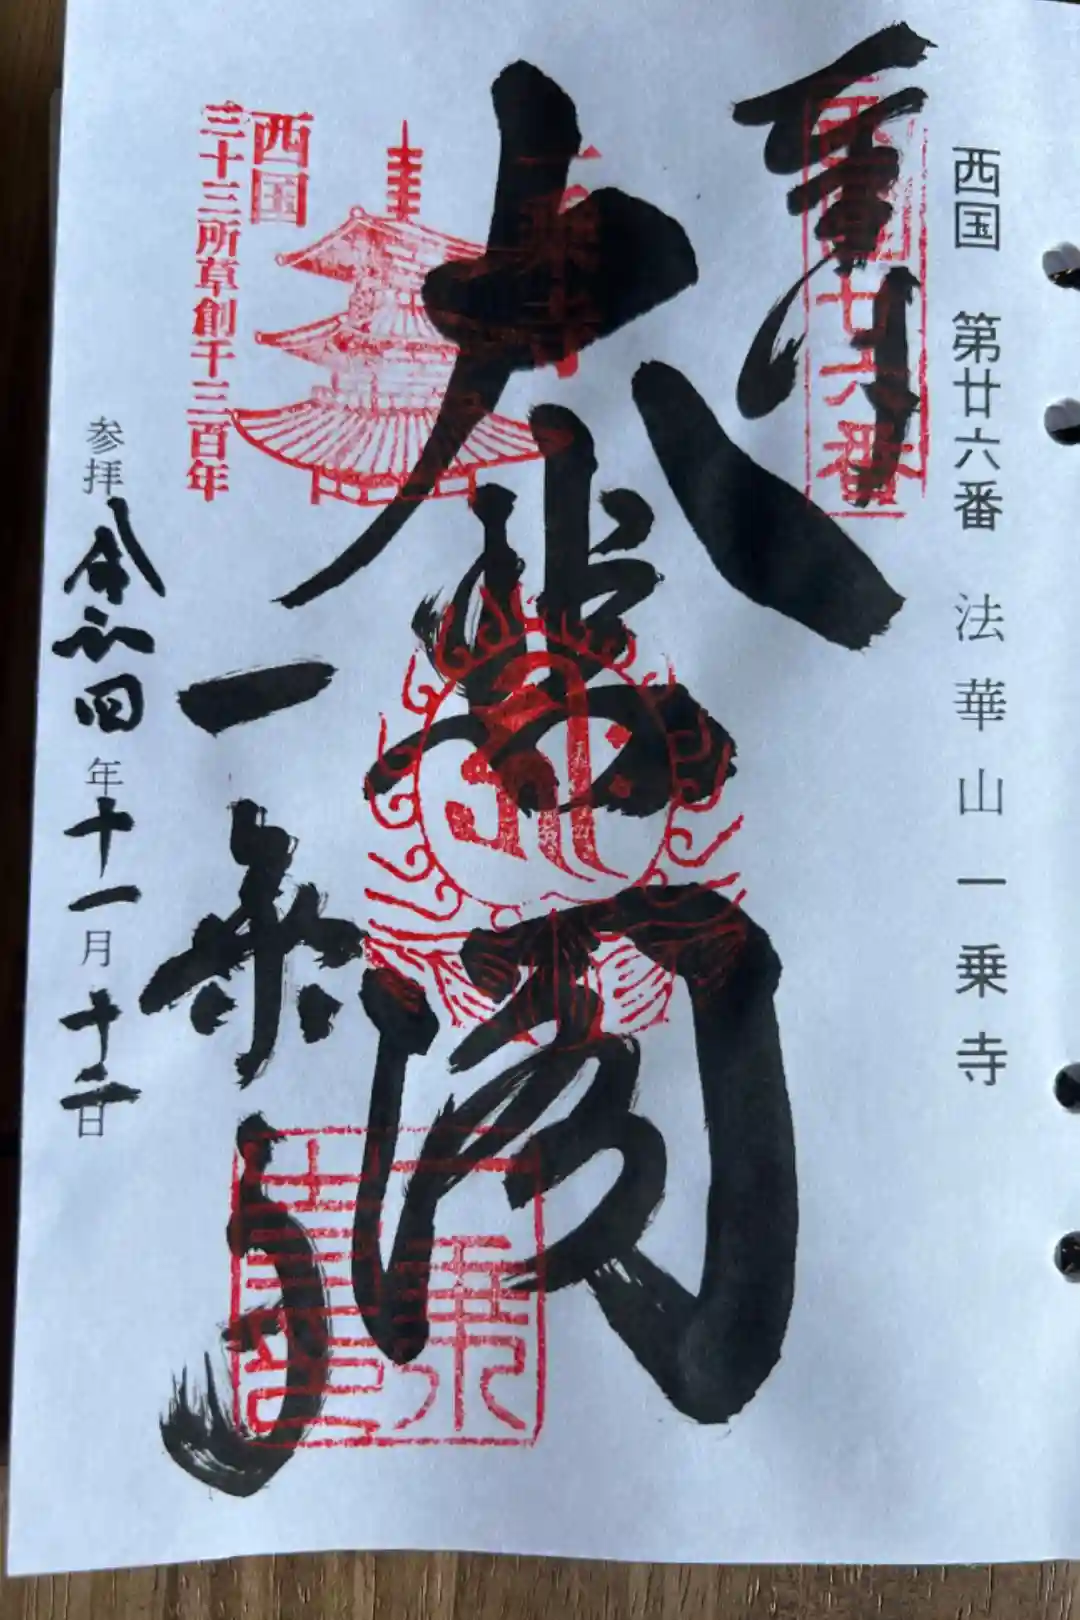 西国 第廿六番 法華山一乗寺
奉拝
西国廿六番
大悲閣
一乗寺
西国
三十三所草創千三百年
一乗寺
参拝 令和四年十一月十二日